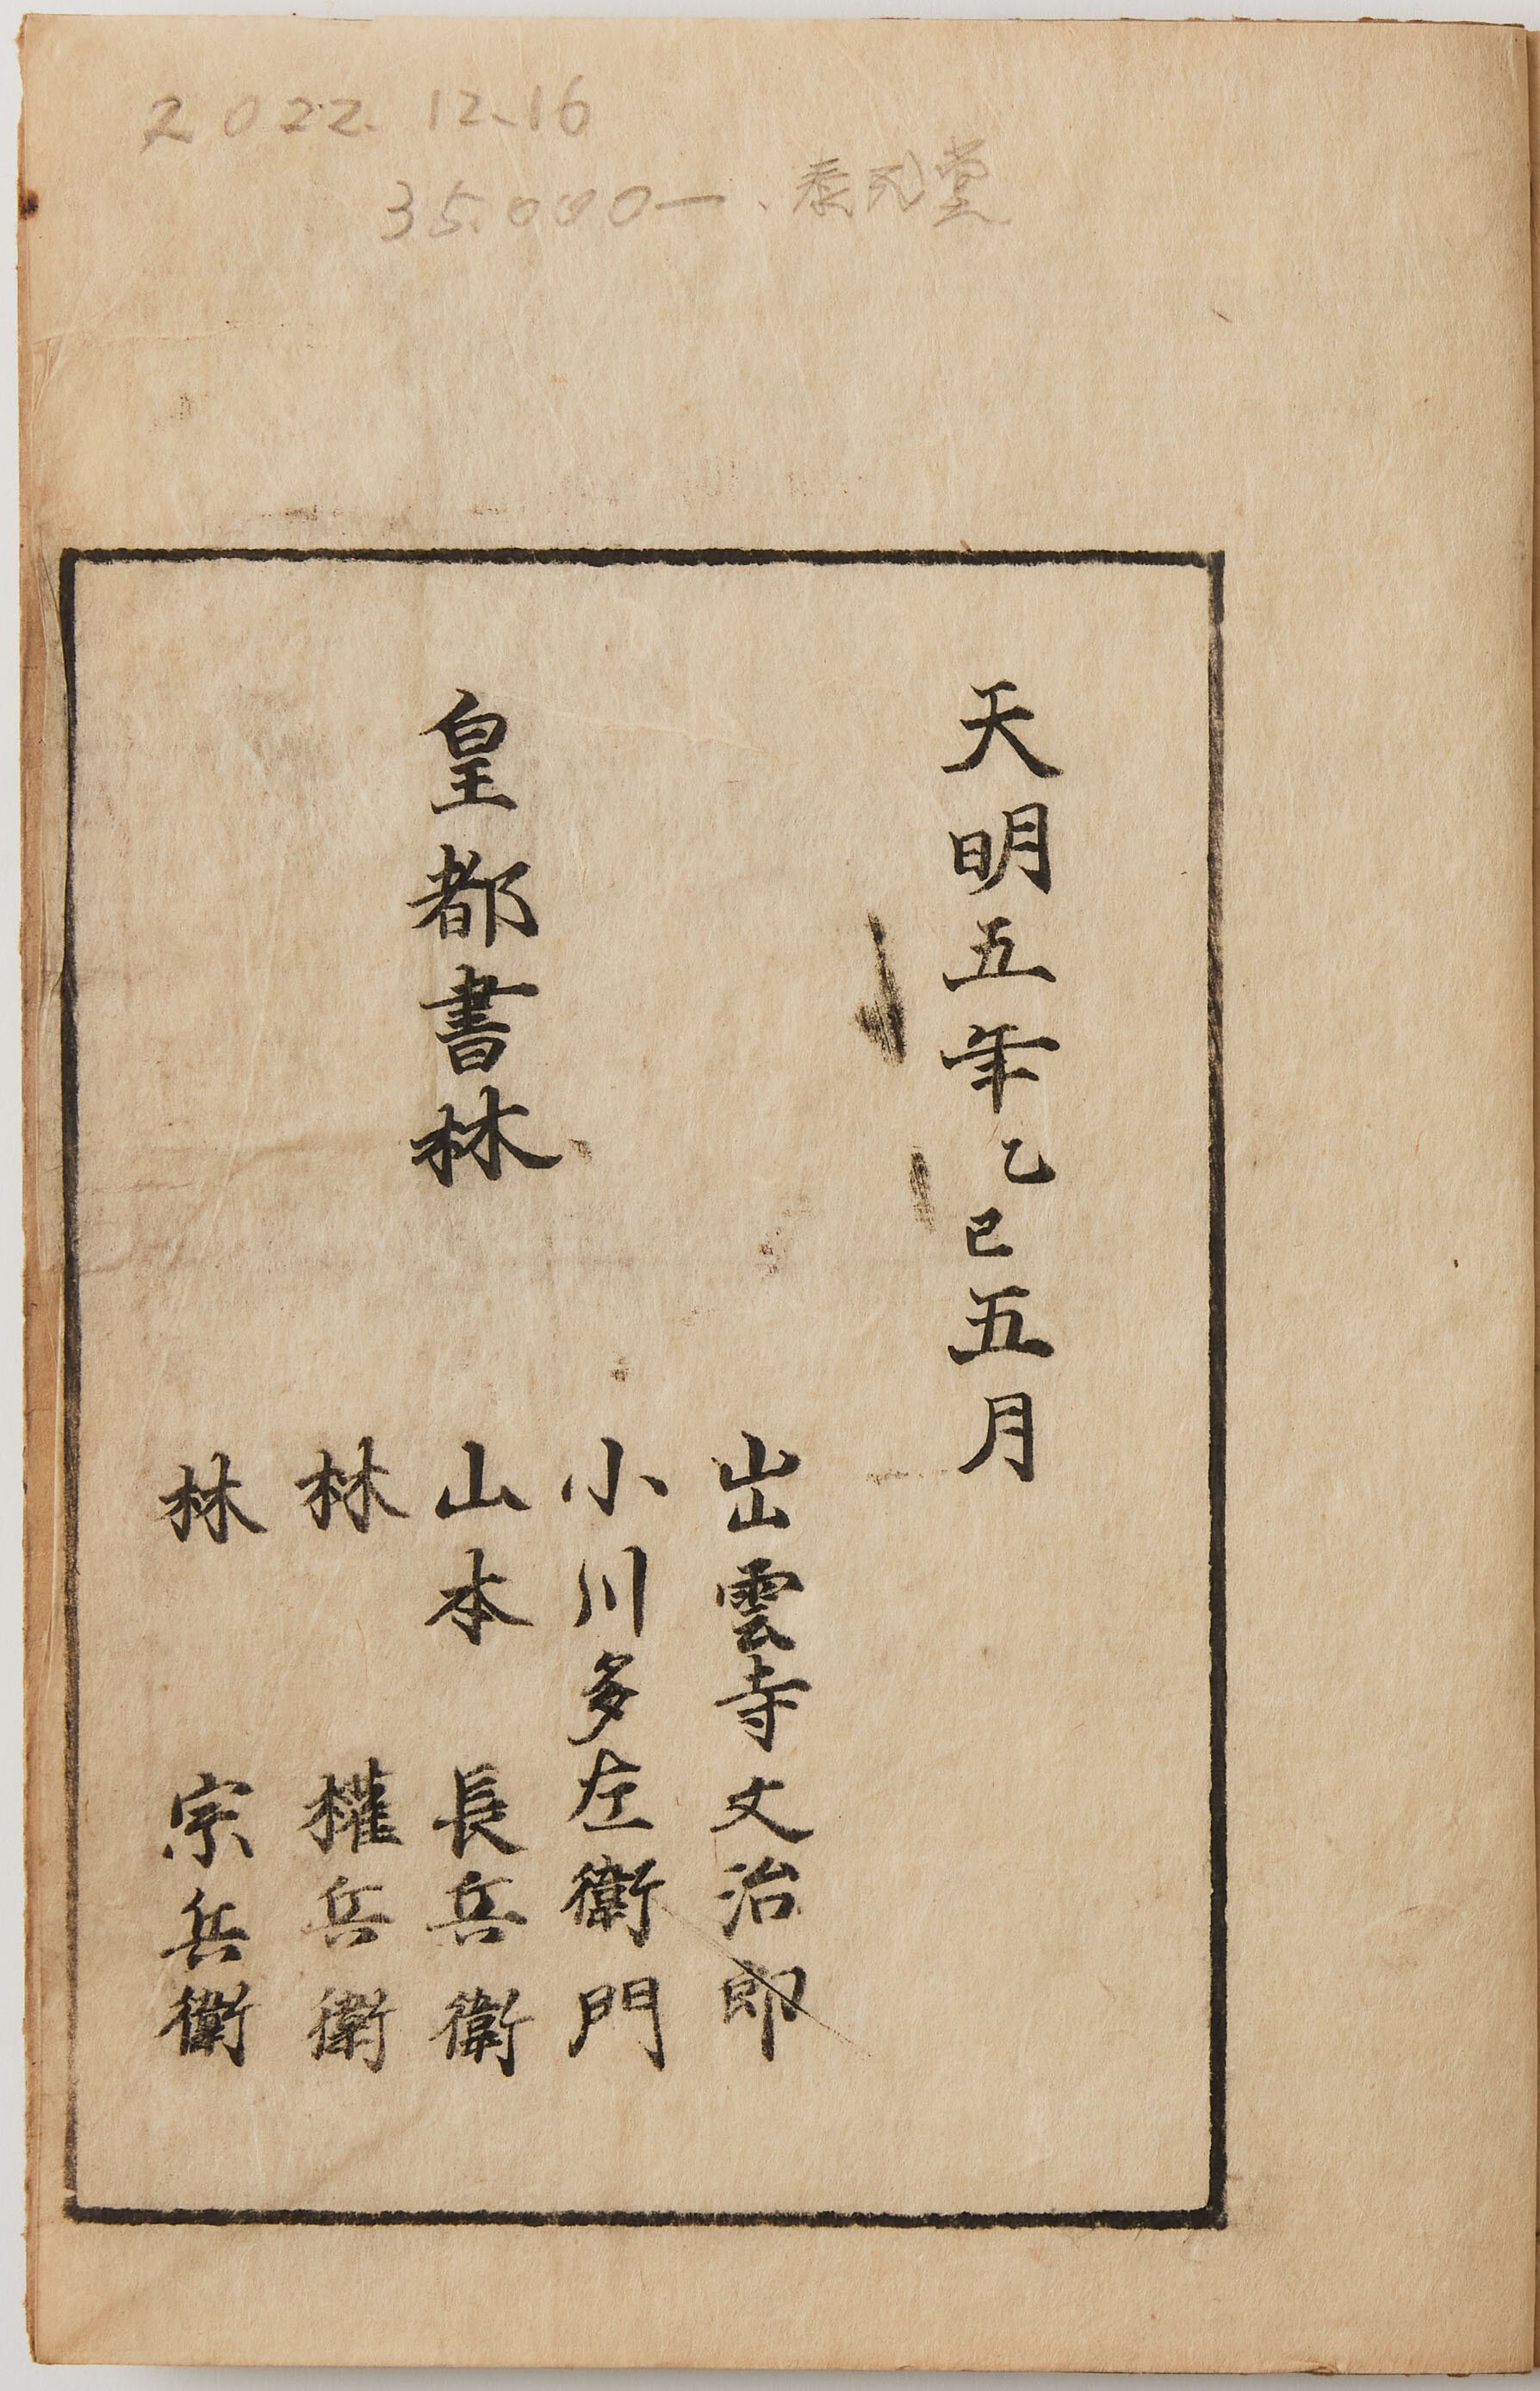 2022.12.16
35.000一、泰成堂
天明五年乙巳五月
皇都書林
出雲寺文治郎
小川多左衛門
山本長兵衛
林權兵衛
林宗兵衛